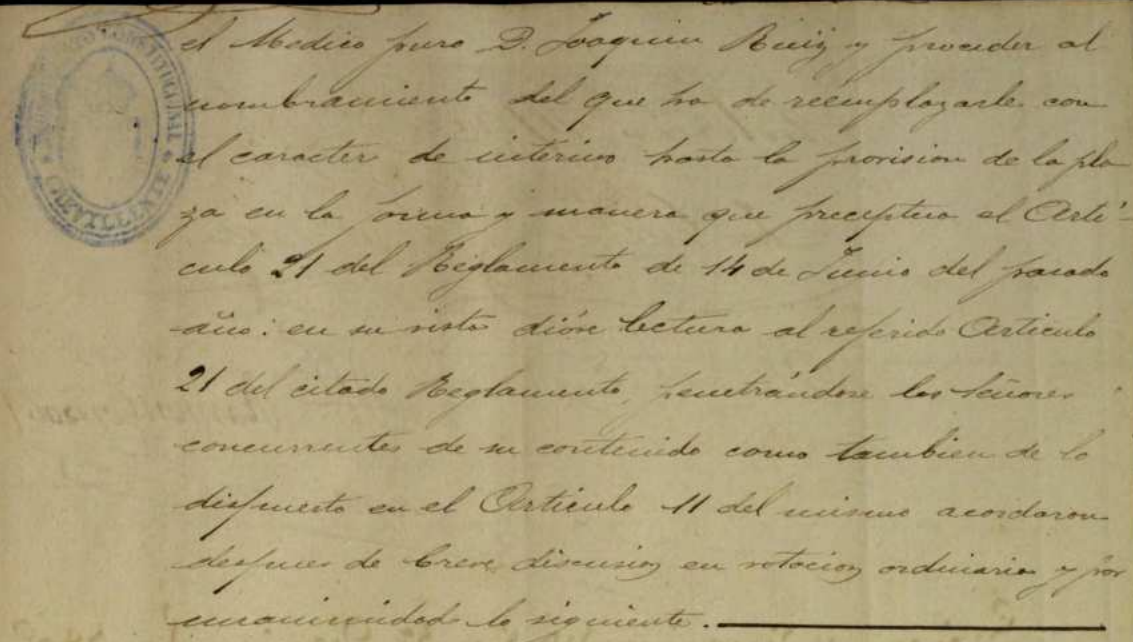 el Medico puro D. Joaquin Ruiz y proceder al
nombramiento del que ha de reemplazarle con
el caracter de interino hasta la provision de la pla
za en la forma y manera que preceptua el Arti-
culo 21 del Reglamento de 14 de Junio del pasado
año: en su vista dióse lectura al referido Articulo
21 del citado Reglamento, penetrándose los Señores
concurrentes de su contenido como tambien de lo
dispuesto en el Articulo 11 del mismo acordaron
despues de breve discusion en votacion ordinaria y por
unanimidad lo siguiente.
CONSTITUCIONAL
CREVILLENTE